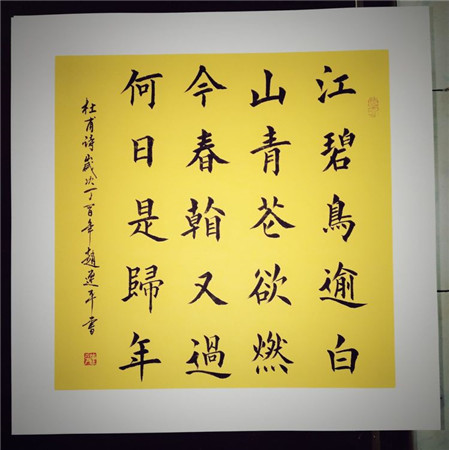 江碧鳥逾白
山青花欲燃
今春看又過
何日是歸年
杜甫诗歲次丁酉年趙連平書